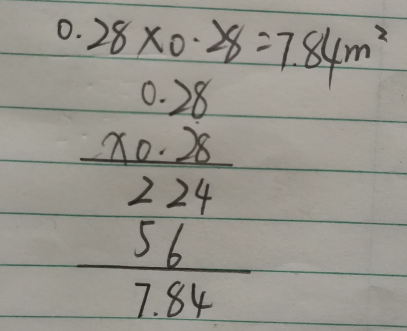 0.28×0.28=7.84m²
0.28
×0.28
224
56
7.84